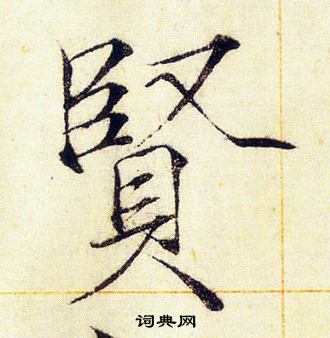 賢
词典网